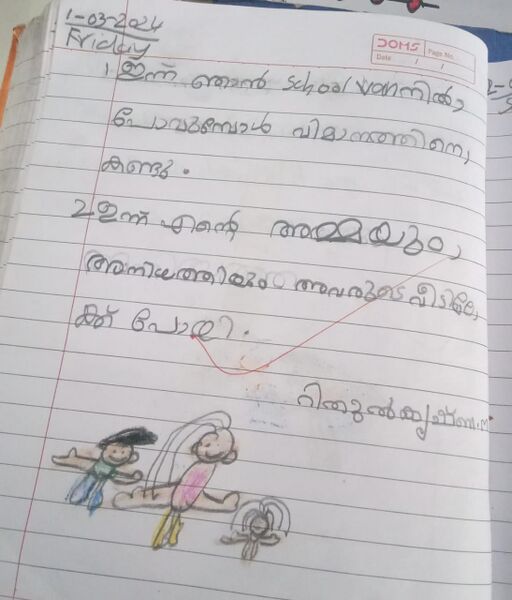 1-03-2024
Friday
DOMS
Page No.
Date / /
1 ഇന്ന് ഞാൻ School vanനിൽ
പോവുമ്പോൾ വിമാനത്തിനെ
കണ്ടു.
2 ഇന്ന് എന്റെ അമ്മയും,
അനിയത്തിയും അവരുടെ വീട്ടിലേ
ക്ക് പോയി.